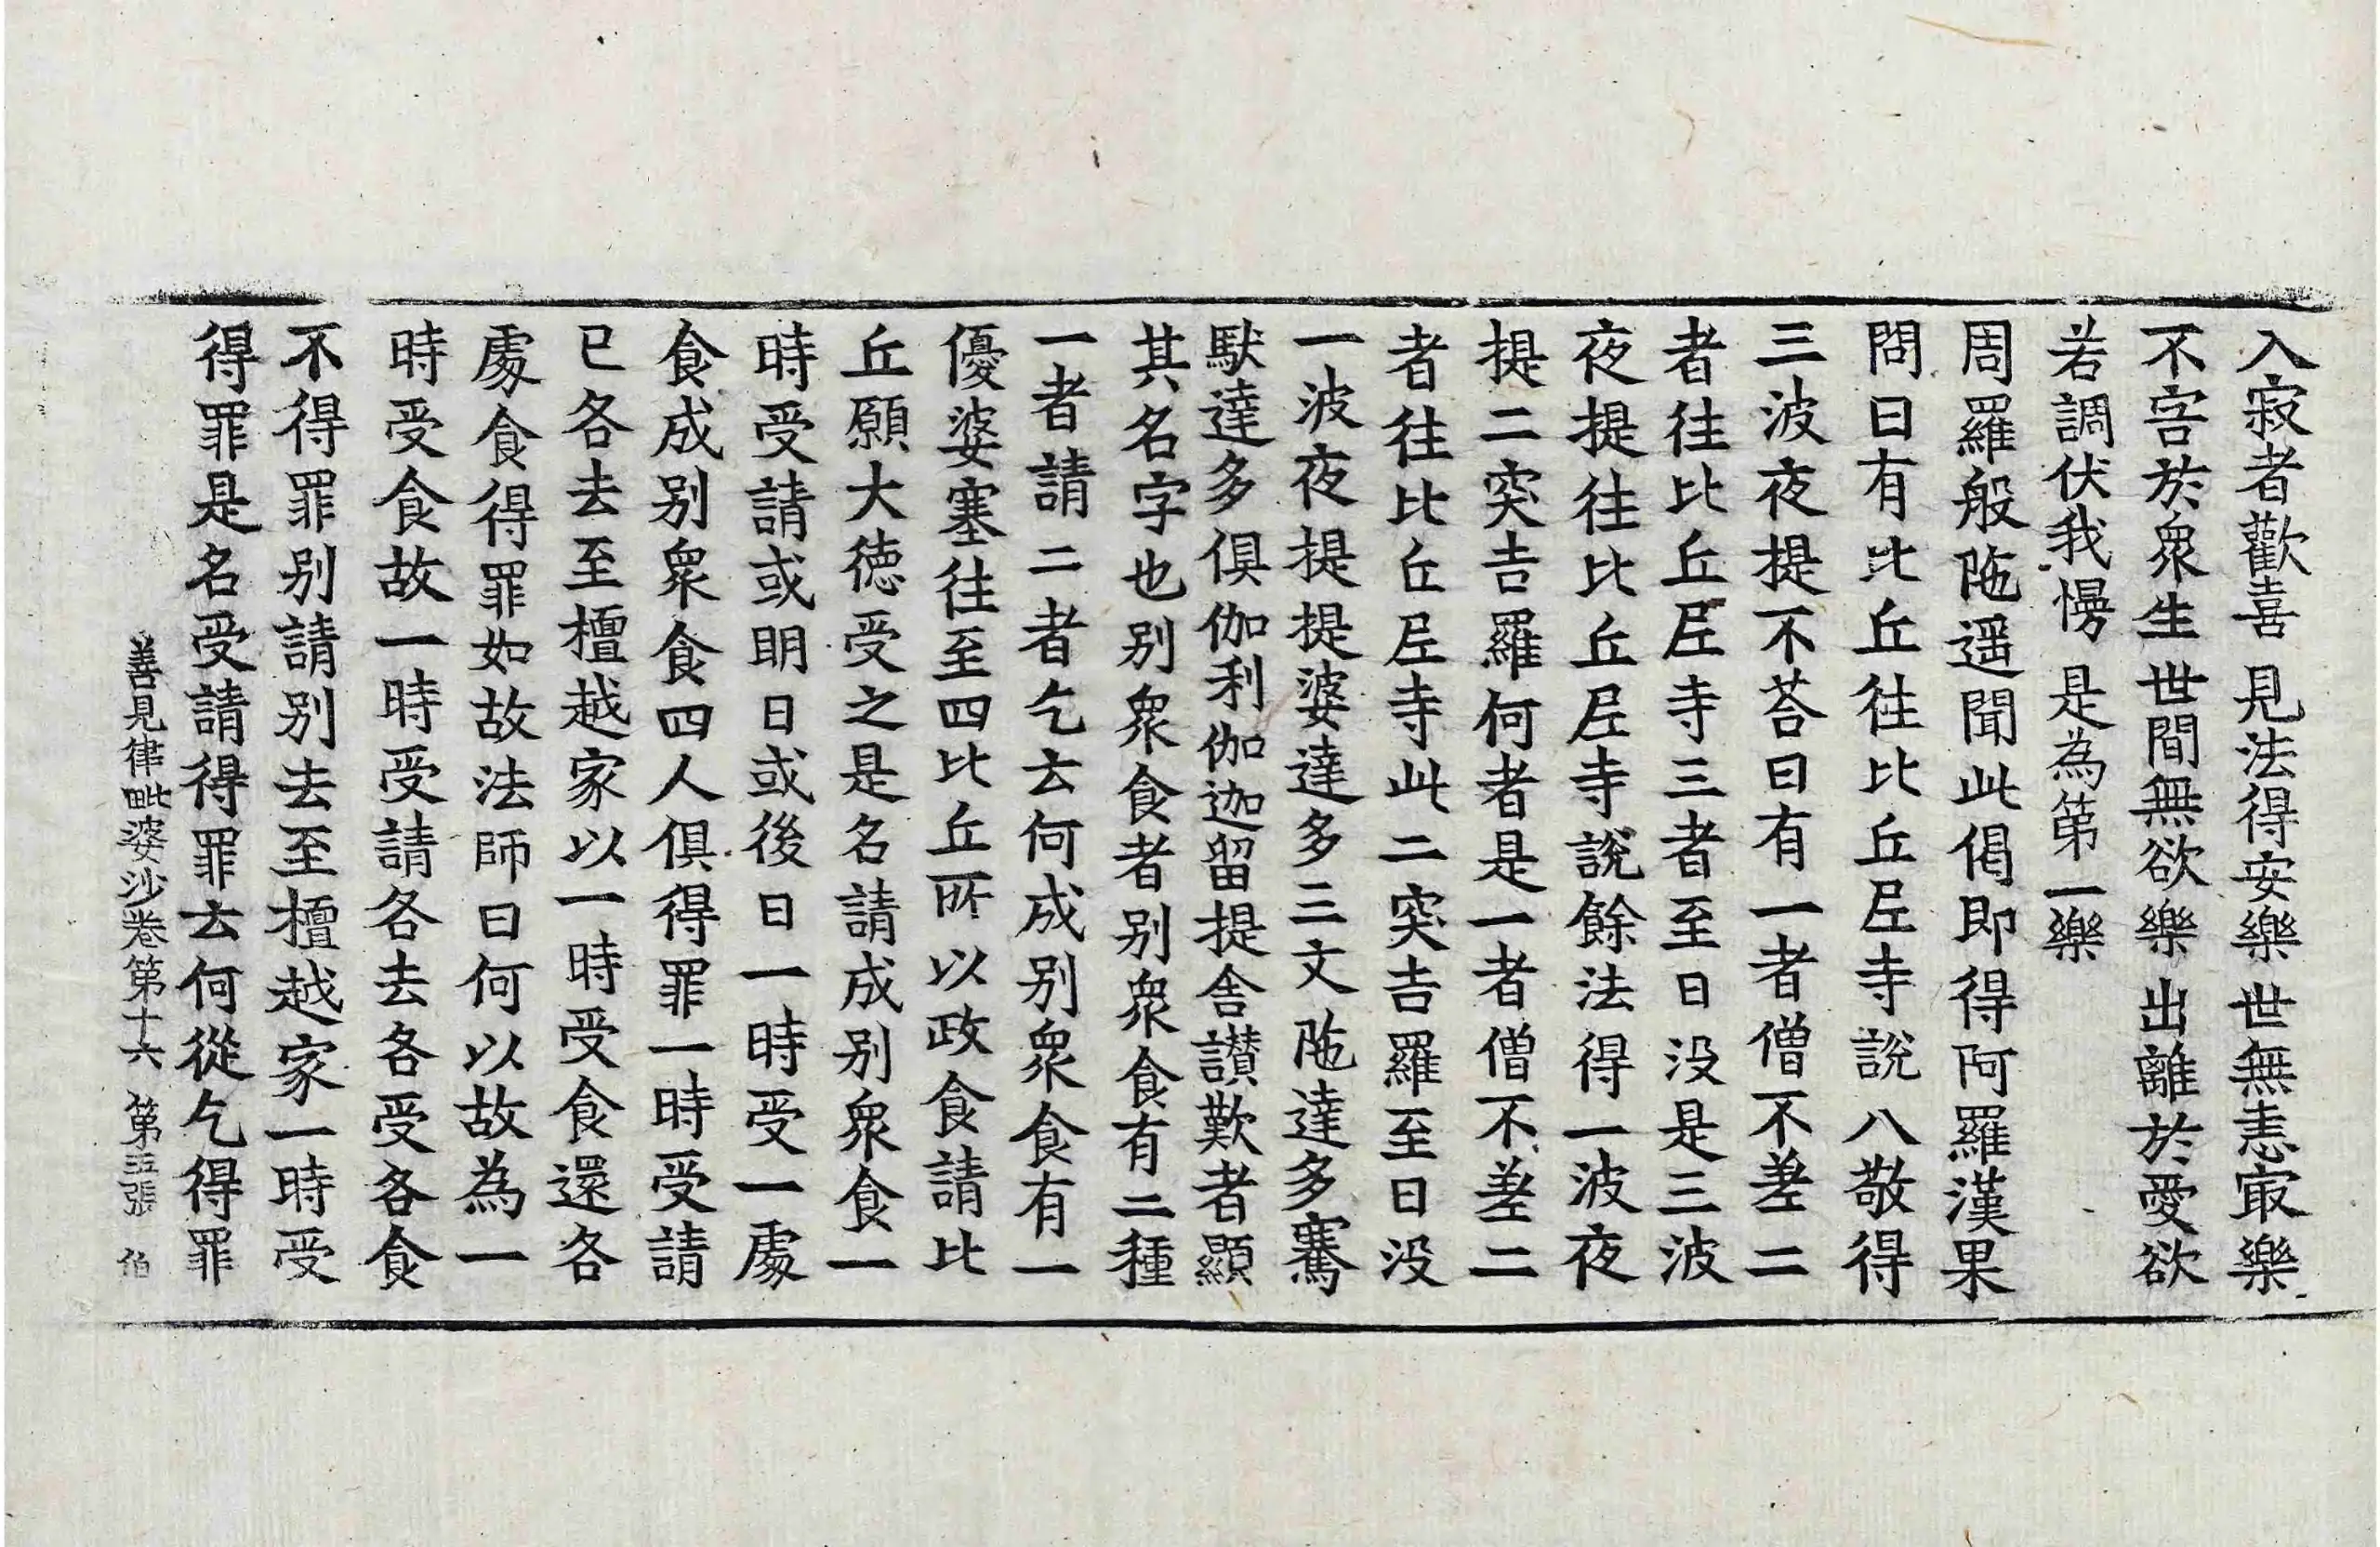 入寂者歡喜 見法得安樂 世無恚㝡樂
不害於衆生 世間無欲樂 出離於愛欲
若調伏我慢 是為第一樂
周羅般陁遥聞此偈即得阿羅漢果
問曰有比丘往比丘尼寺說八敬得
三波夜提不荅曰有一者僧不差二
者往比丘尼寺三者至日没是三波
夜提往比丘尼寺說餘法得一波夜
提二突吉羅何者是一者僧不差二
者往比丘尼寺此二突吉羅至日没
一波夜提提婆達多三文陁達多騫
馱達多俱伽利伽迦留提舍讃歎者顯
其名字也别衆食者别衆食有二種
一者請二者乞云何成别衆食有一
優婆塞往至四比丘所以政食請比
丘願大德受之是名請成别衆食一
時受請或明日或後日一時受一處
食成别衆食四人俱得罪一時受請
已各去至檀越家以一時受食還各
處食得罪如故法師曰何以故為一
時受食故一時受請各去各受各食
不得罪别請别去至檀越家一時受
得罪是名受請得罪云何從乞得罪
善見律毗婆沙卷第十六 第五張 伯